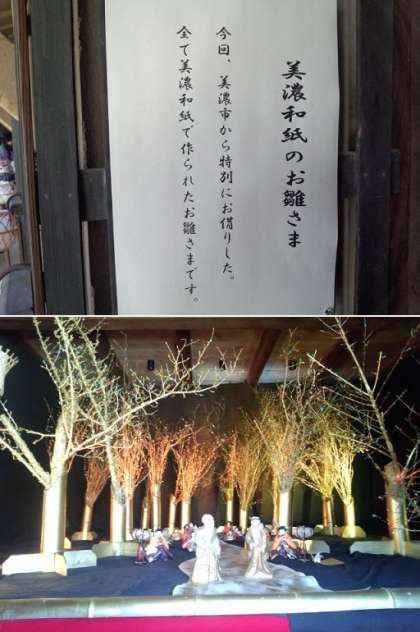 美濃和紙のお雛さま
今回、美濃市から特別にお借りした。
全て美濃和紙で作られたお雛さまです。